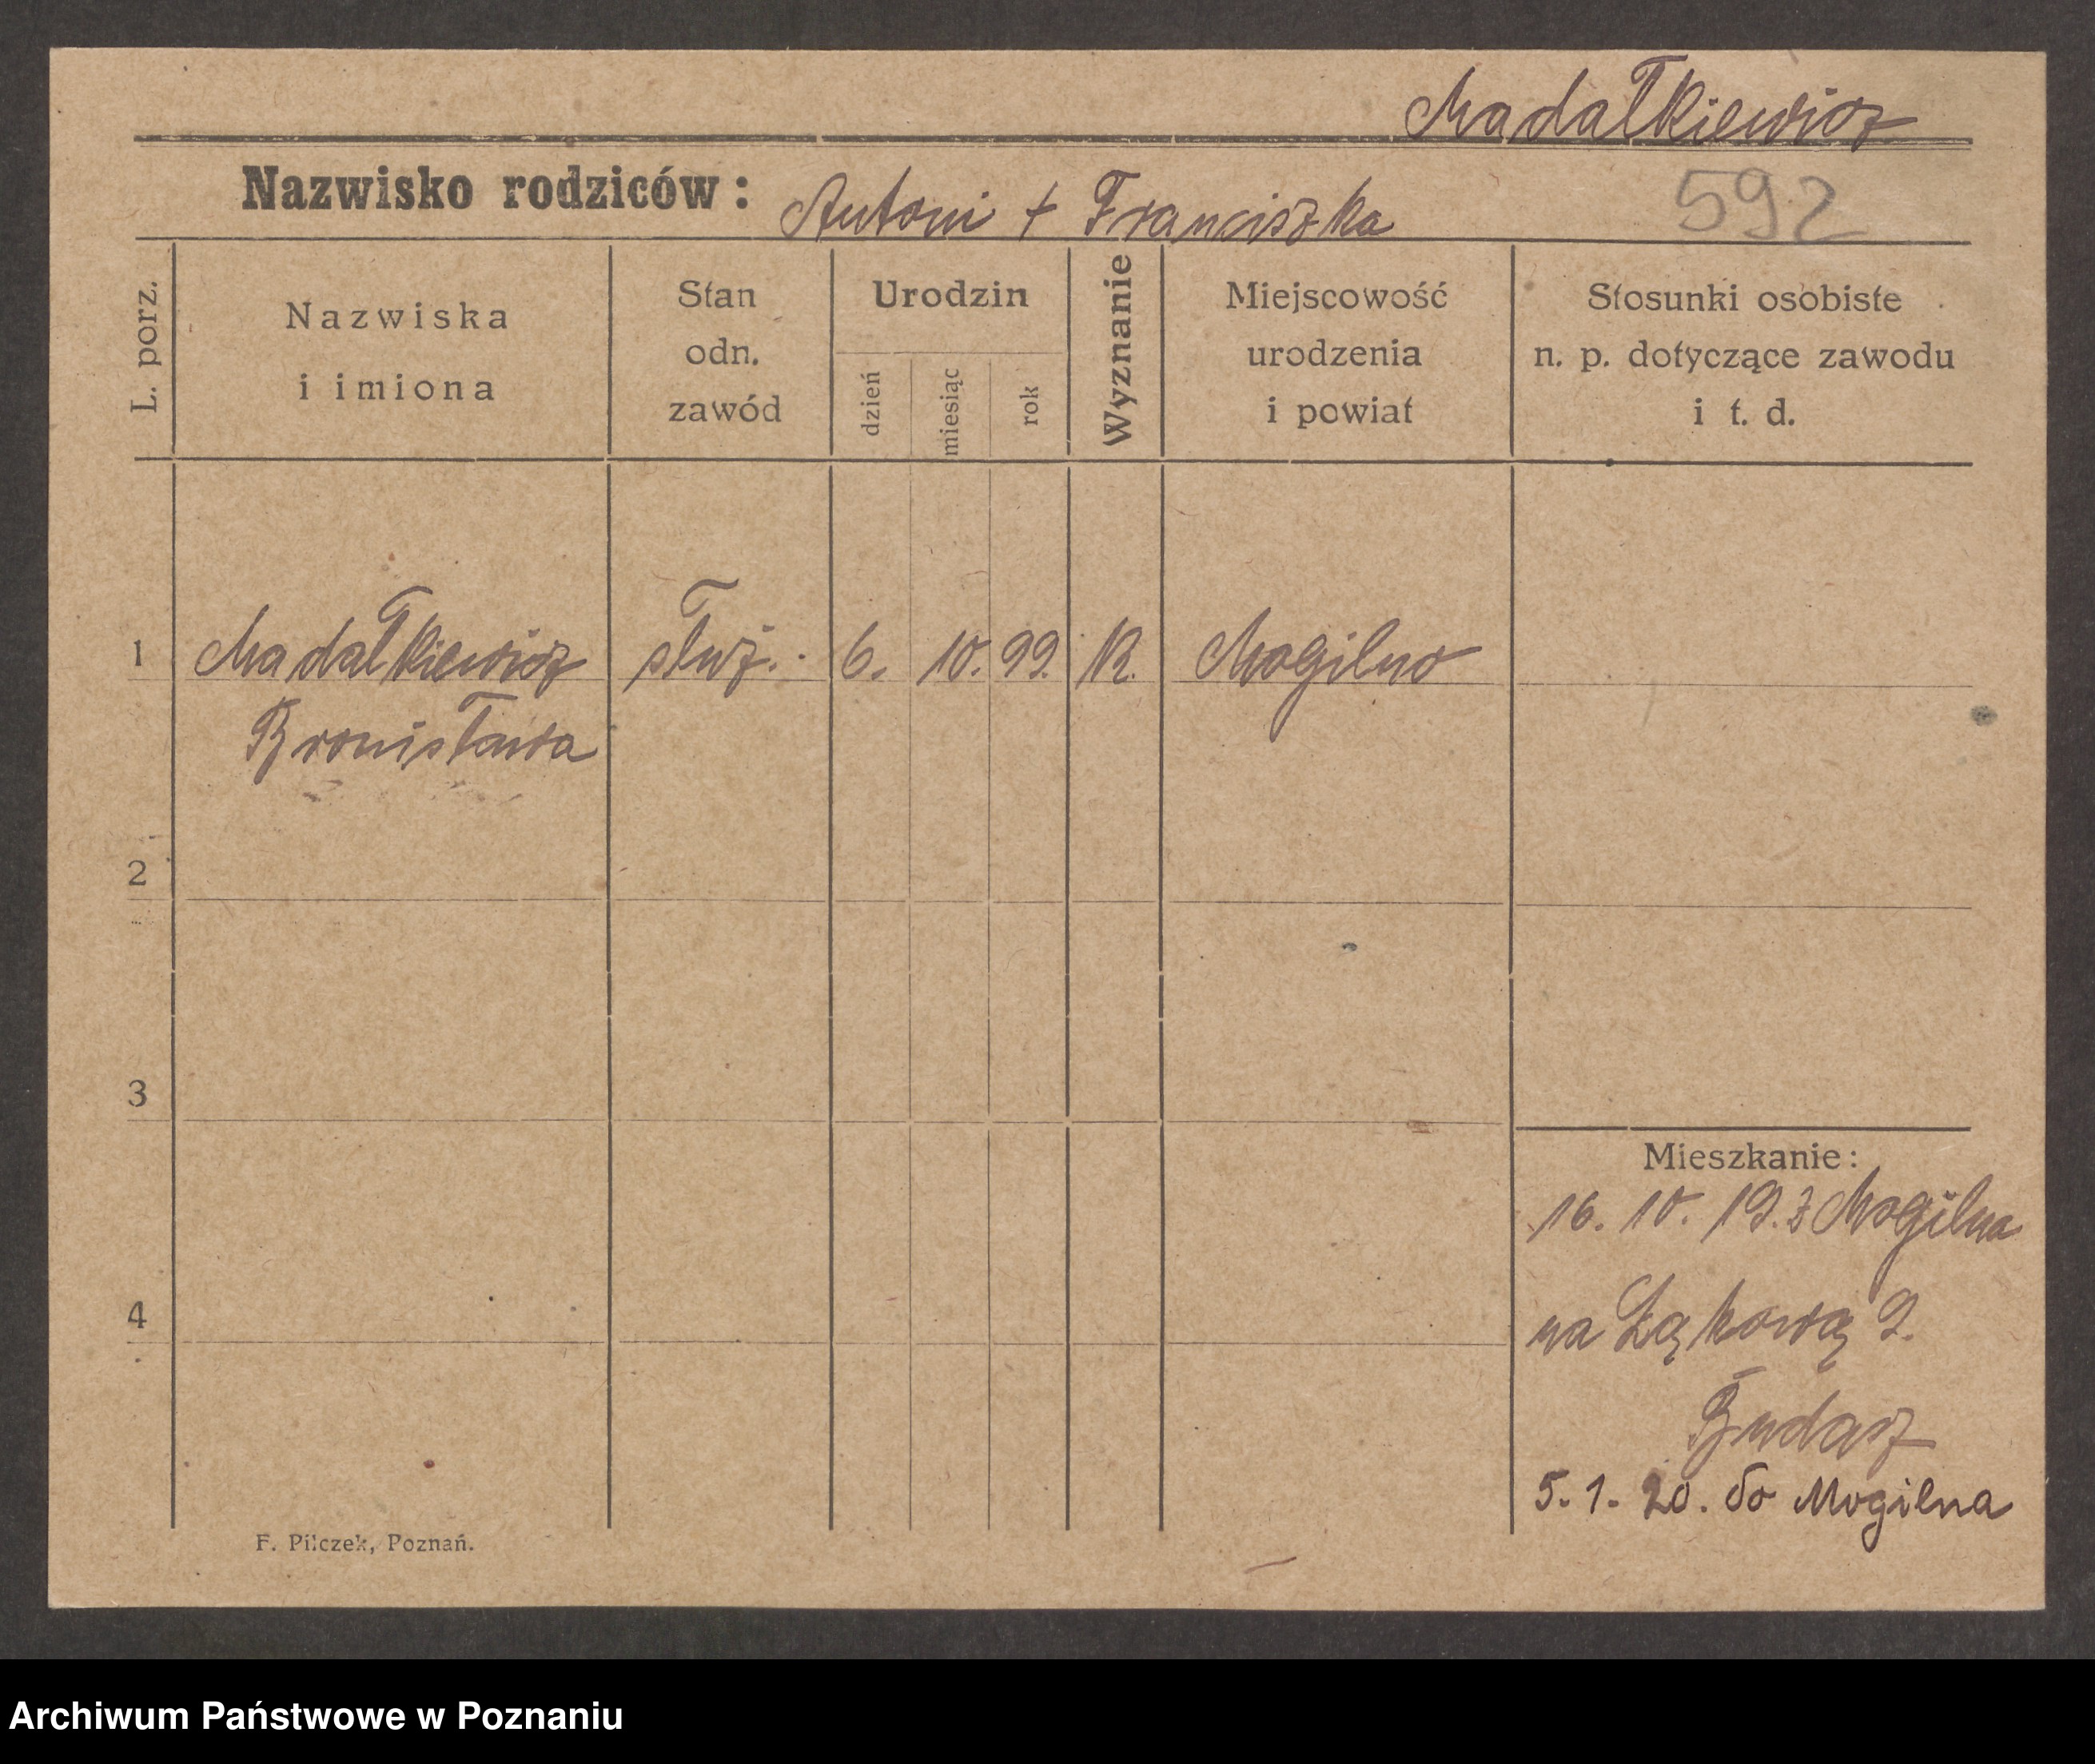 Madałkiewicz
Nazwisko rodziców: Antoni + Franciszka
592
L. porz.
Nazwiska
i imiona
Stan
odn.
zawód
Urodzin
dzień
miesiąc
rok
Wyznanie
Miejscowość
urodzenia
i powiat
Stosunki osobiste
n. p. dotyczące zawodu
i t. d.
1 Madałkiewicz służ. 6. 10. 99. K. Mogilno
Bronisława
2
3
Mieszkanie:
16. 10. 19. z Mogilna
4
na Łąkową 9.
Budasz
5. 1. 20. do Mogilna
F. Pilczek, Poznań.
Archiwum Państwowe w Poznaniu